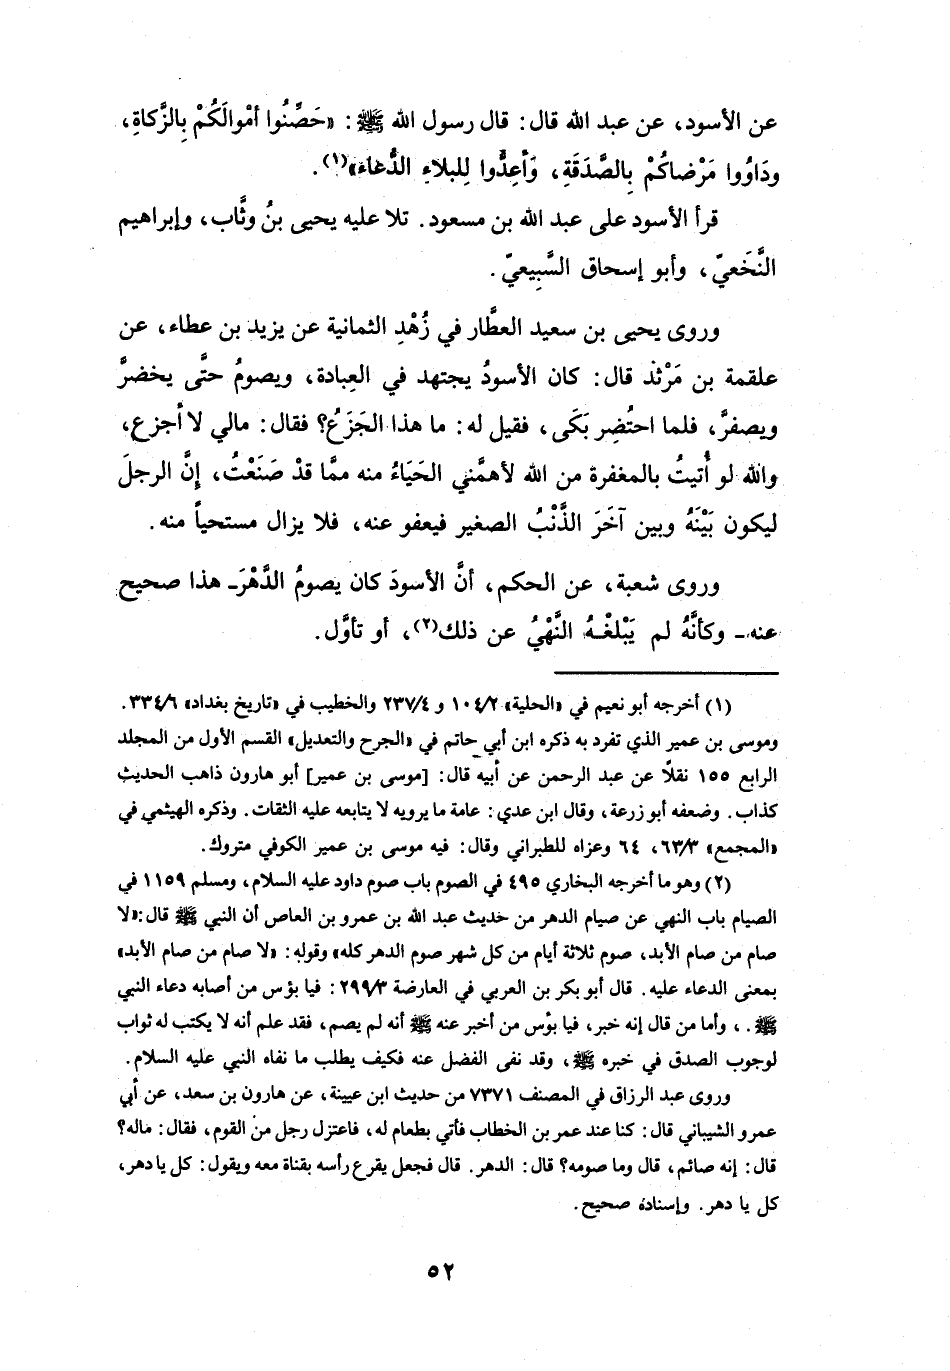 عن الأسود، عن عبد الله قال: قال رسول الله ﷺ: «حَصِّنُوا أمْوالَكُمْ بِالزَّكاةِ،
ودَاوُوا مَرْضاكُمْ بِالصَّدَقَةِ، وَأعِدُّوا لِلبلاءِ الدُّعَاءَ»(١).
قرأ الأسود على عبد الله بن مسعود. تلا عليه يحيى بنُ وثَّاب، وإبراهيم
النَّخَعيّ، وأبو إسحاق السَّبِيعيّ.
وروى يحيى بن سعيد العطَّار في زُهْدِ الثمانية عن يزيد بن عطاء، عن
علقمة بن مَرْثد قال: كان الأسودُ يجتهد في العِبادة، ويصومُ حتَّى يخضرَّ
ويصفرَّ، فلما احتُضِر بَكَى، فقيل له: ما هذا الجَزَعُ؟ فقال: مالي لا أجزع،
والله لو أُتيتُ بالمغفرة من الله لأهمَّني الحَيَاءُ منه ممَّا قدْ صَنَعْتُ، إنَّ الرجلَ
ليكون بَيْنَهُ وبين آخَرَ الذَّنْبُ الصغير فيعفو عنه، فلا يزال مستحياً منه.
وروى شعبة، عن الحكم، أنَّ الأسودَ كان يصومُ الدَّهْرَ ـ هذا صحيح
عنه ـ وكأنَّهُ لم يَبْلغْـهُ النَّهْيُ عن ذلك(٢)، أو تأوَّل.
(١) أخرجه أبو نعيم في «الحلية» ١٠٤/٢ و ٢٣٧/٤ والخطيب في «تاريخ بغداد» ٣٣٤/٦.
وموسى بن عمير الذي تفرد به ذكره ابن أبي حاتم في «الجرح والتعديل» القسم الأول من المجلد
الرابع ١٥٥ نقلاً عن عبد الرحمن عن أبيه قال: [موسى بن عمير] أبو هارون ذاهب الحديث
كذاب. وضعفه أبو زرعة، وقال ابن عدي: عامة ما يرويه لا يتابعه عليه الثقات. وذكره الهيثمي في
«المجمع» ٦٣/٣، ٦٤ وعزاه للطبراني وقال: فيه موسى بن عمير الكوفي متروك.
(٢) وهو ما أخرجه البخاري ٤٩٥ في الصوم باب صوم داود عليه السلام، ومسلم ١١٥٩ في
الصيام باب النهي عن صيام الدهر من حديث عبد الله بن عمرو بن العاص أن النبي ﷺ قال: «لا
صام من صام الأبد، صوم ثلاثة أيام من كل شهر صوم الدهر كله» وقوله: «لا صام من صام الأبد»
بمعنى الدعاء عليه. قال أبو بكر بن العربي في العارضة ٢٩٩/٣: فيا بؤس من أصابه دعاء النبي
ﷺ.، وأما من قال إنه خبر، فيا بؤس من أخبر عنه ﷺ أنه لم يصم، فقد علم أنه لا يكتب له ثواب
لوجوب الصدق في خبره ﷺ، وقد نفى الفضل عنه فكيف يطلب ما نفاه النبي عليه السلام.
وروى عبد الرزاق في المصنف ٧٣٧١ من حديث ابن عيينة، عن هارون بن سعد، عن أبي
عمرو الشيباني قال: كنا عند عمر بن الخطاب فأتي بطعام له، فاعتزل رجل من القوم، فقال: ماله؟
قال: إنه صائم، قال وما صومه؟ قال: الدهر. قال فجعل يقرع رأسه بقناة معه ويقول: كل يا دهر،
كل يا دهر. وإسناده صحيح.
٥٢